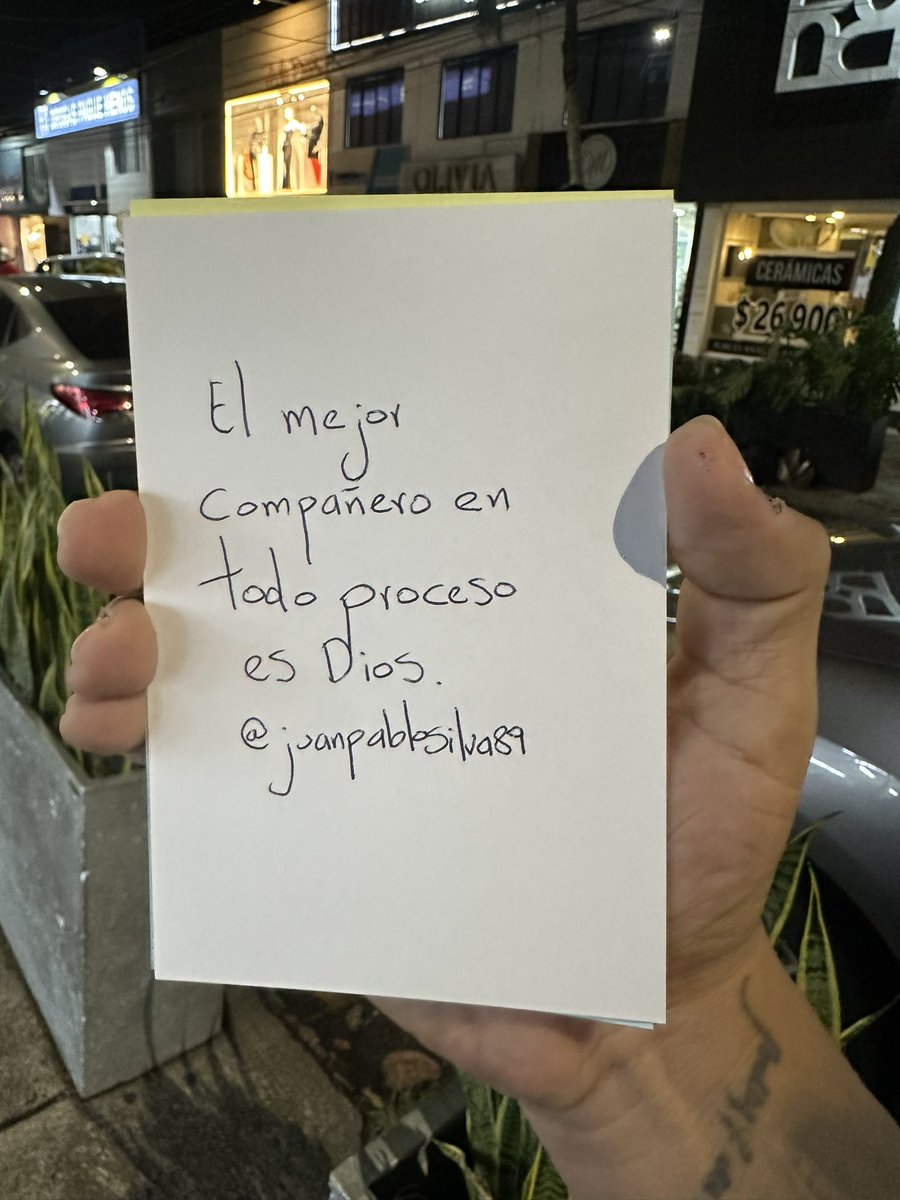 El mejor
compañero en
todo proceso
es Dios.
@juanpablosilva89
CERÁMICAS
$26,900
OLIVIA